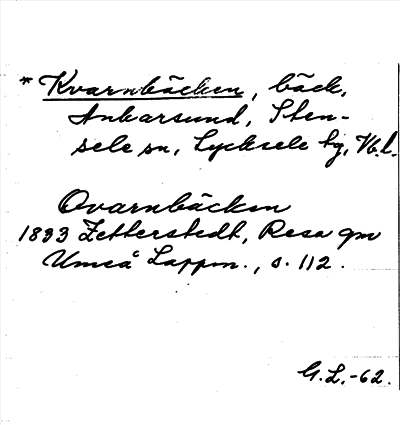 * Kvarnbäcken, bäck,
Ankarsund, Sten-
sele sn, Lycksele tg, Vb.l.
Qvarnbäcken
1833 Zetterstedt, Resa gm
Umeå Lappm., s. 112.
G.L.-62.